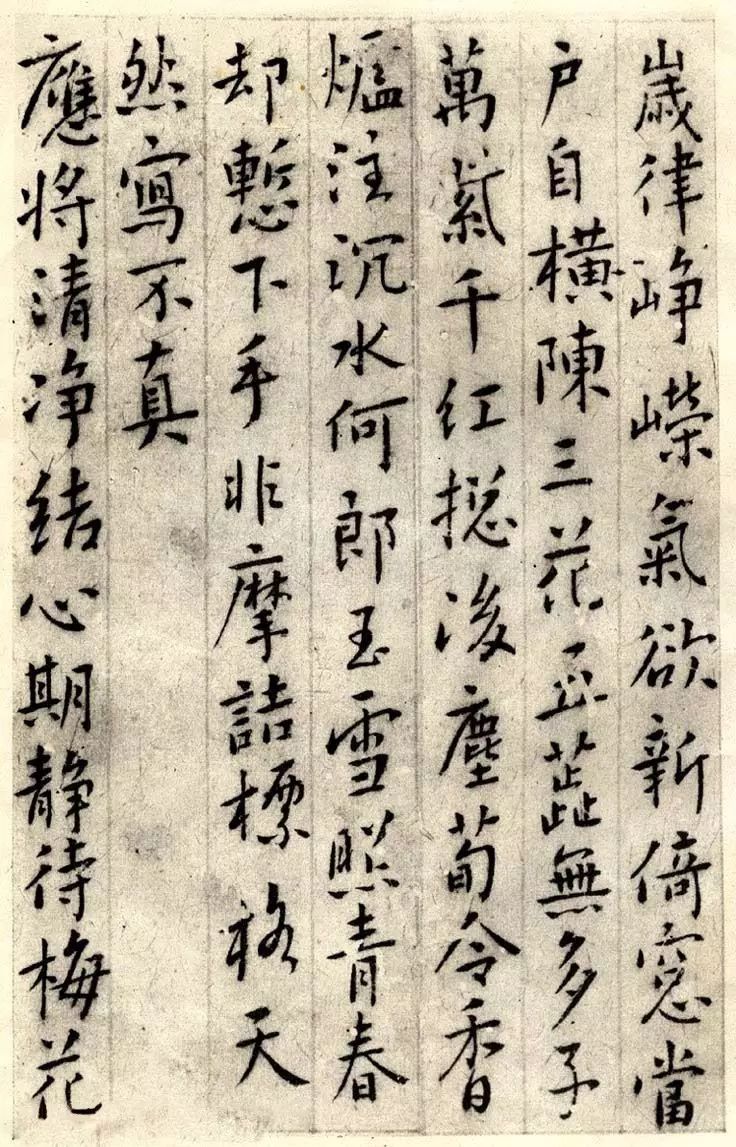 歲律崢嶸氣欲新倚窓當
户自橫陳三花五蕋無多子
萬紫千紅揔後塵荀令香
爐注沉水何郎玉雪照青春
却慙下手非摩詰標格天
然寫不真
應將清净結心期静待梅花